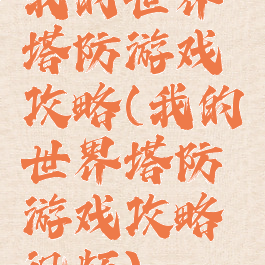 我的世界
塔防游戏
攻略(我的
世界塔防
游戏攻略
视频)